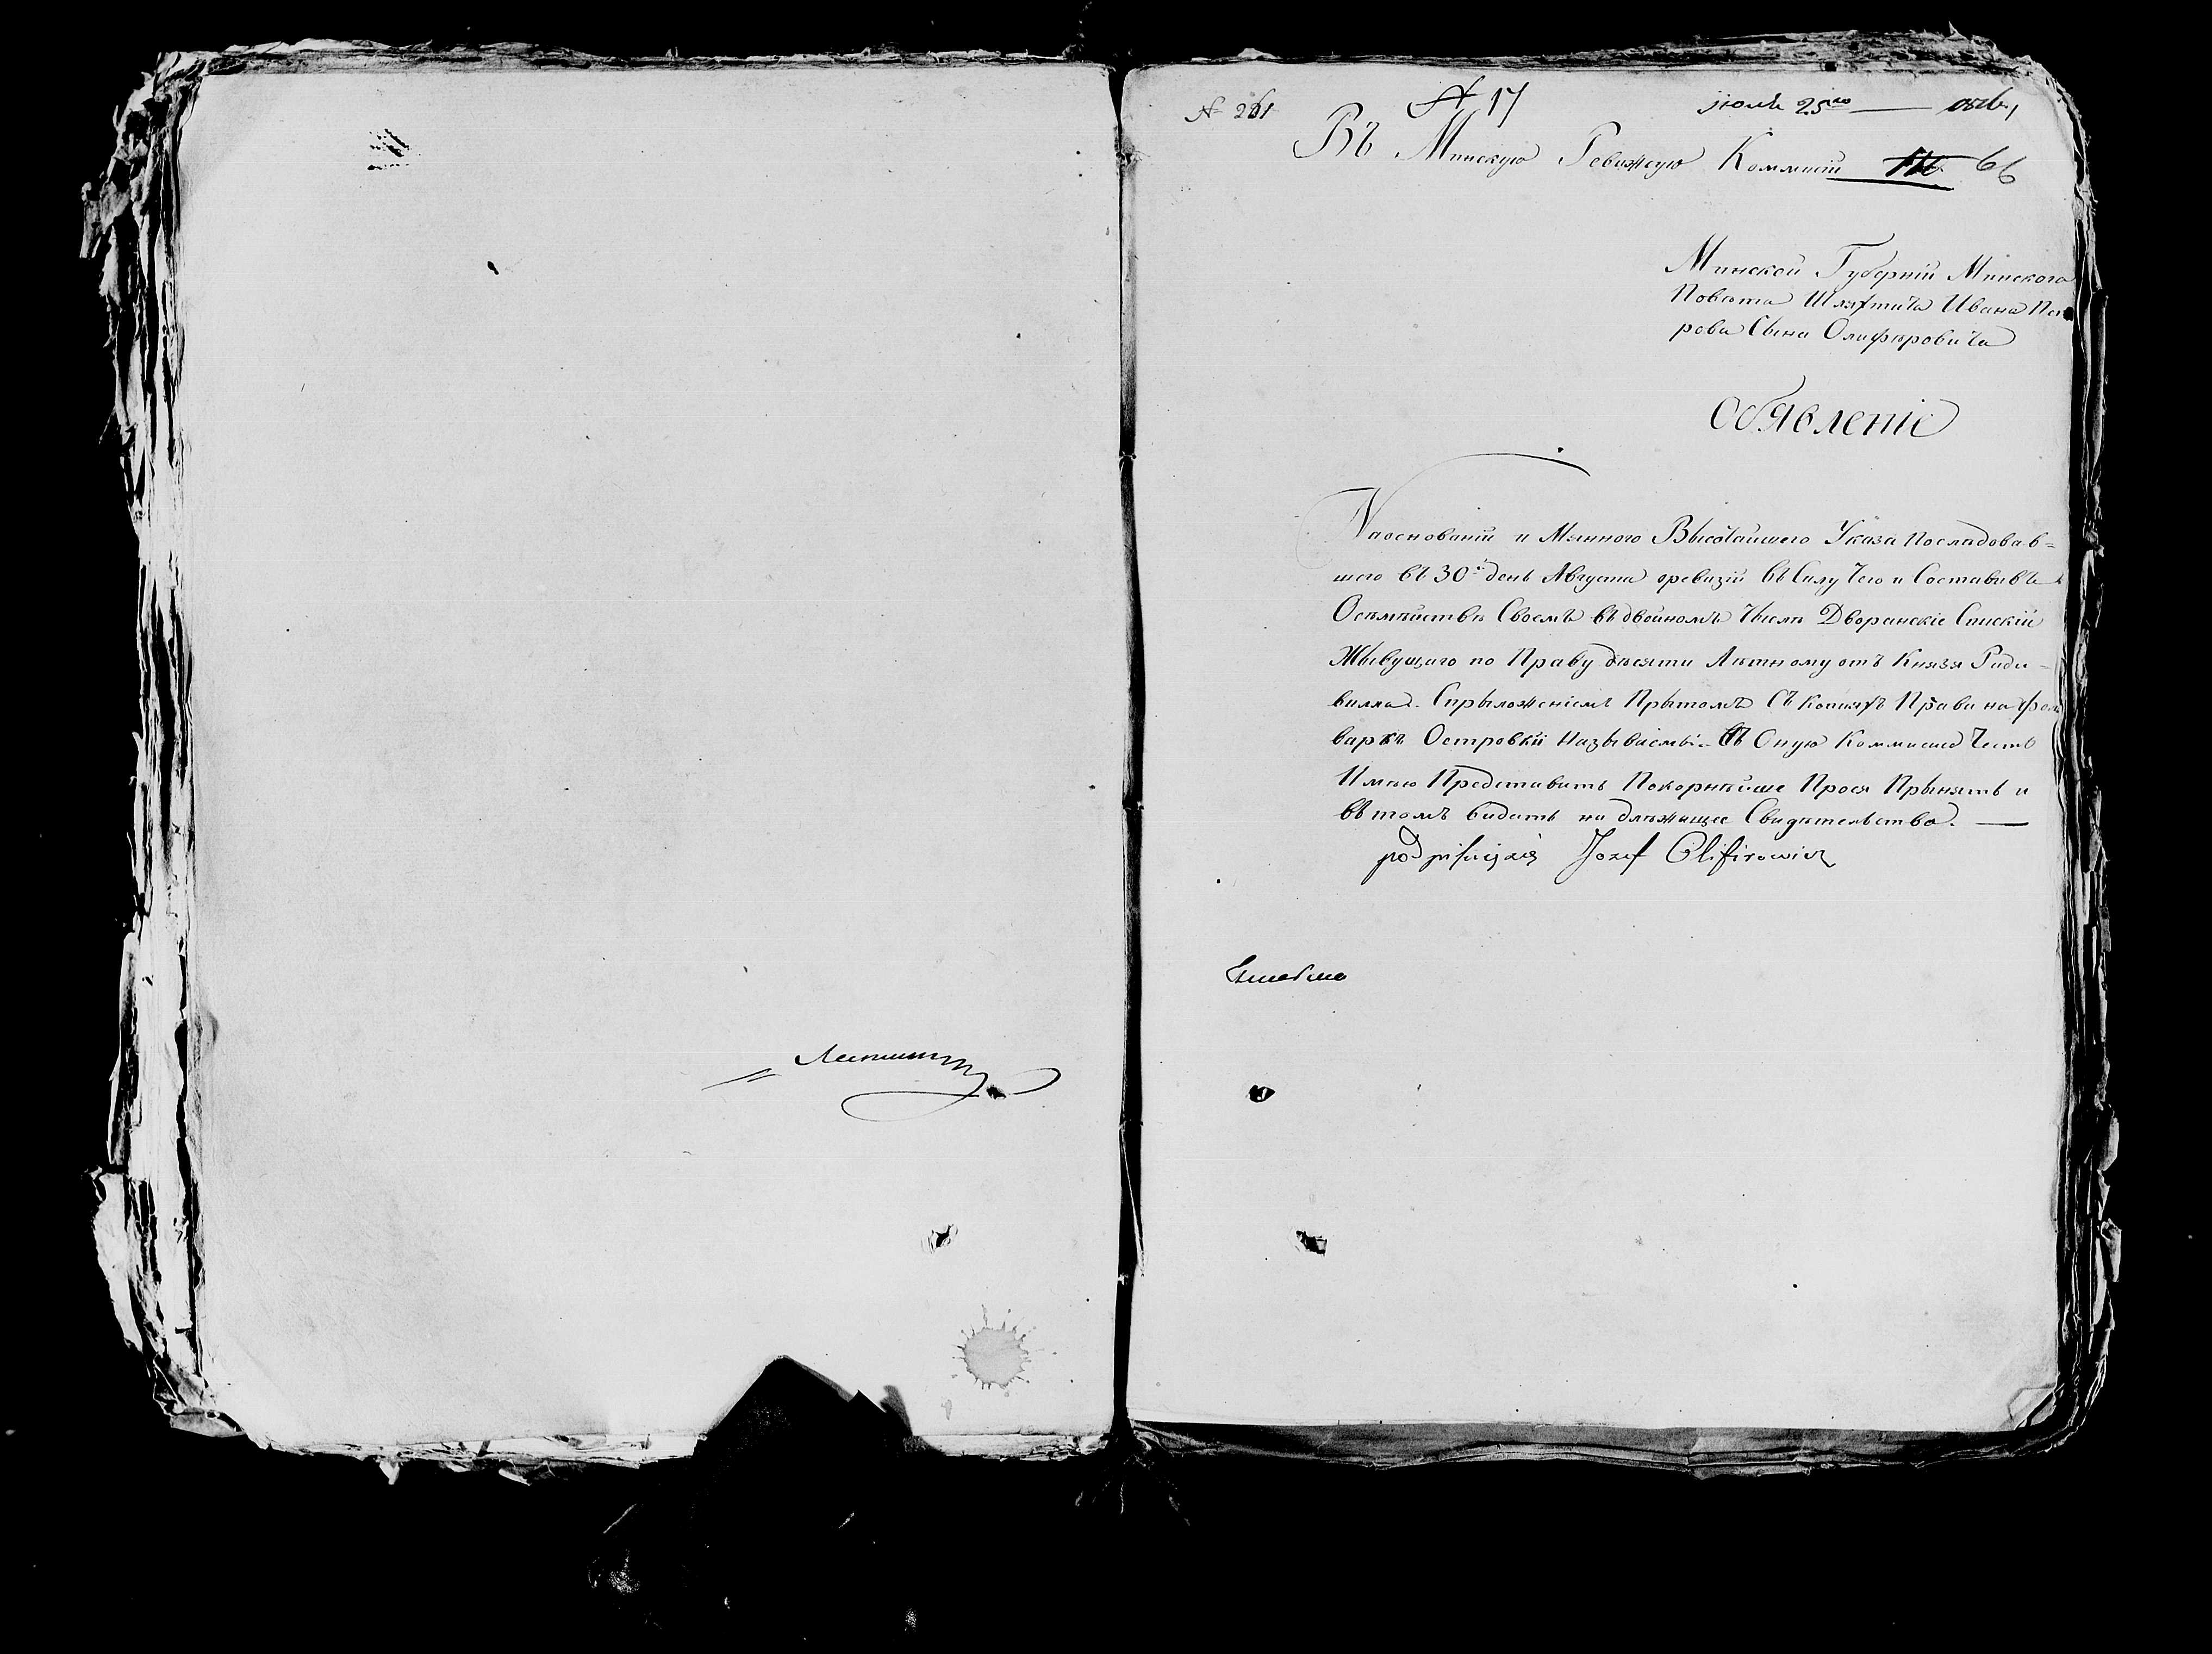 № 261 № 17 июля 25го
Въ Минскую Ревижную Коммисiи 66
Минской Губернiи Минского
Повѣта Шляхтича Ивана Пет
рова Сына Олифѣровича
Обявленiе
Наоснованiи и Мянного Высочайшего Указа Последовав=
шего въ 30й день Августа оревизiи въ Силу Чего и Составивъ
Осѣмѣйствѣ Своемъ въ двойномъ Числѣ Дворанскiе Спискiи
Жывущаго по Праву десяти Лѣтному отъ Князя Ради-
вилла. Спрыложенiемъ Прытомъ Съ Копiяхъ Права на фол
варкъ Островки Называемы въ Оную Коммисiю Честь
Имѣю Представить Покорнѣйше Прося Прынять и
вътомъ видать на длѣжищее Свидѣтельство. —
Jozef Olifirowicz